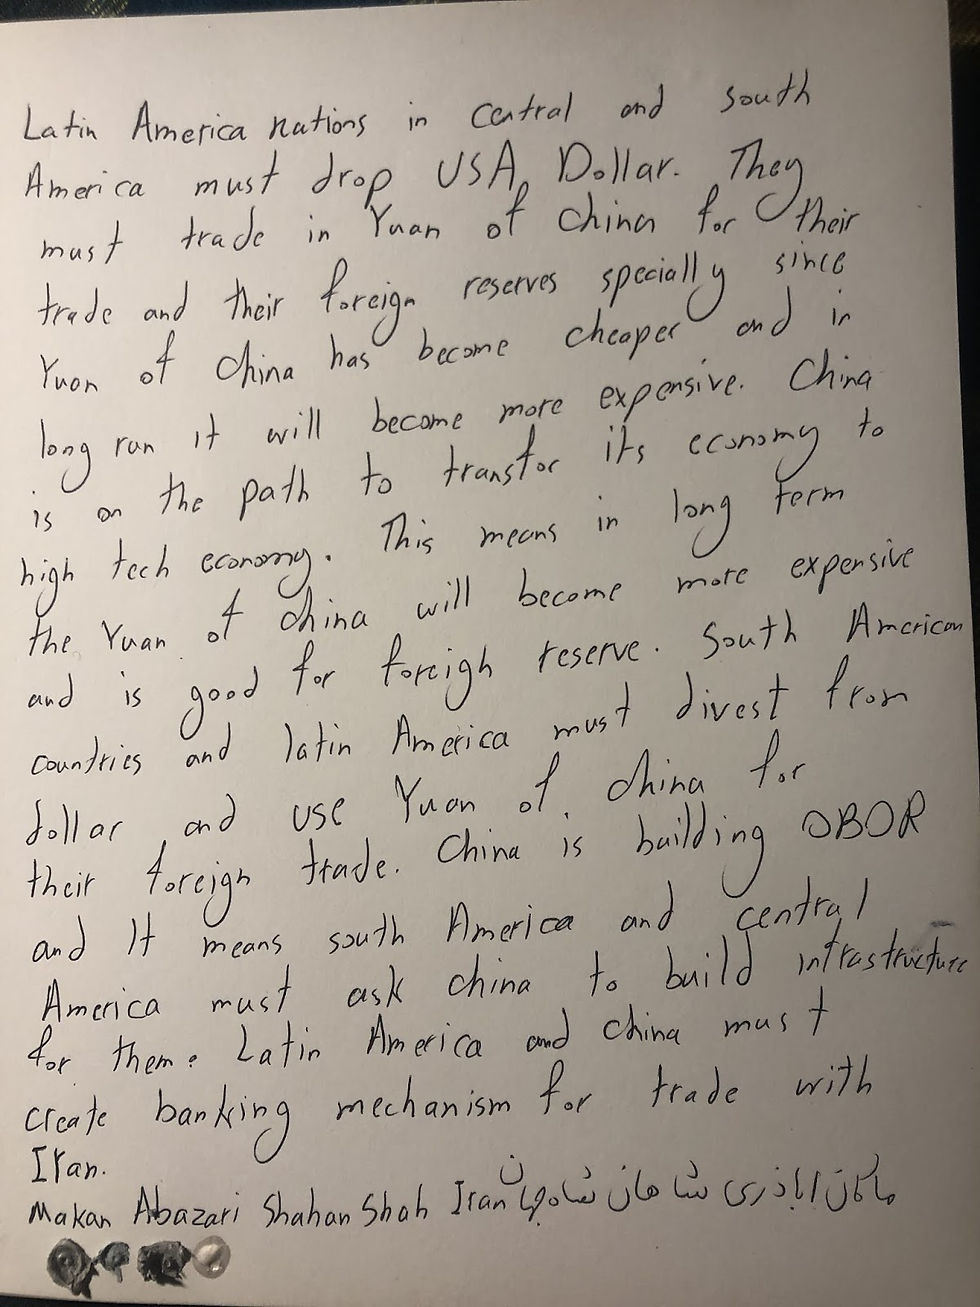 Latin America nations in central and south
America must drop USA, Dollar. They
must trade in Yuan of China for their
trade and their foreign reserves specially since
Yuan of China has become cheaper and in
long run it will become more expensive. China
is on the path to transfor its economy to
high tech economy. This means in long term
the Yuan of China will become more expensive
and is good for foreigh reserve. South American
countries and latin America must divest from
dollar and use Yuan of China for
their foreign trade. China is building OBOR
and It means south America and central
America must ask china to build infrastructure
for them. Latin America and China must
create banking mechanism for trade with
Iran.
Makan Abazari Shahan Shah Iran ماکان اباذری شاهان شاه جهان